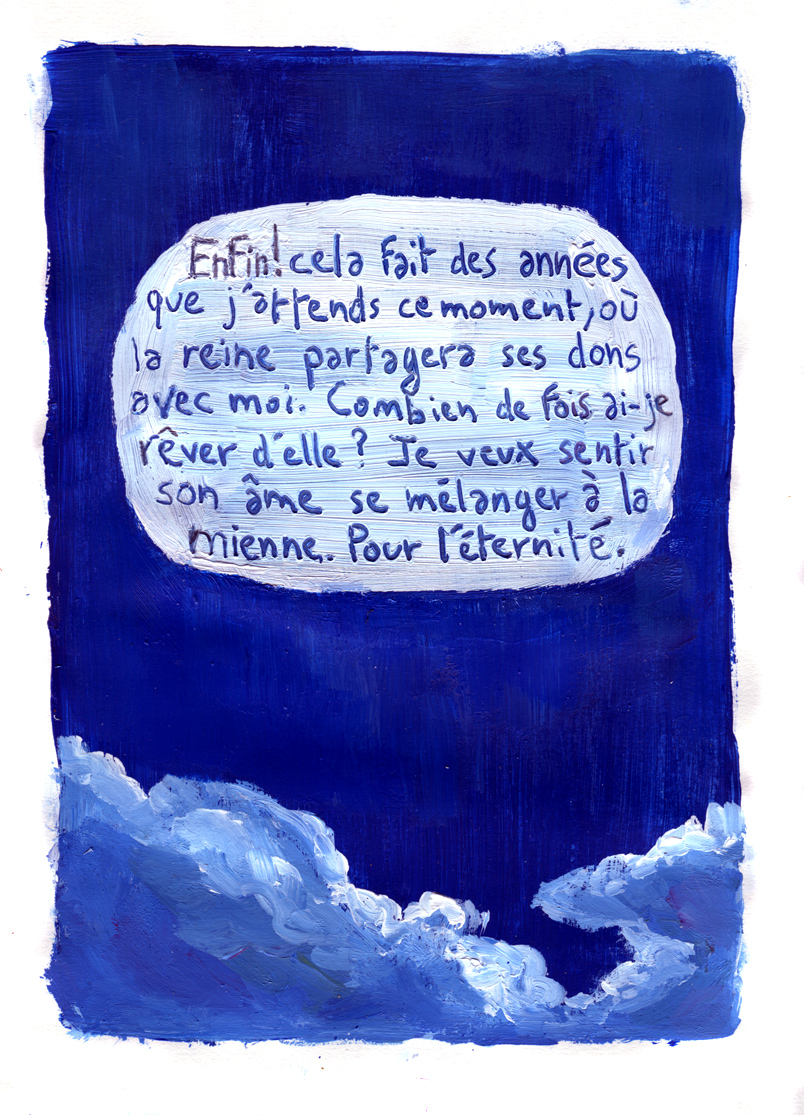 EnFin! cela fait des années
que j'attends ce moment, où
la reine partagera ses dons
avec moi. Combien de fois ai-je
rêver d'elle ? Je veux sentir
son âme se mélanger à la
mienne. Pour l'éternité.